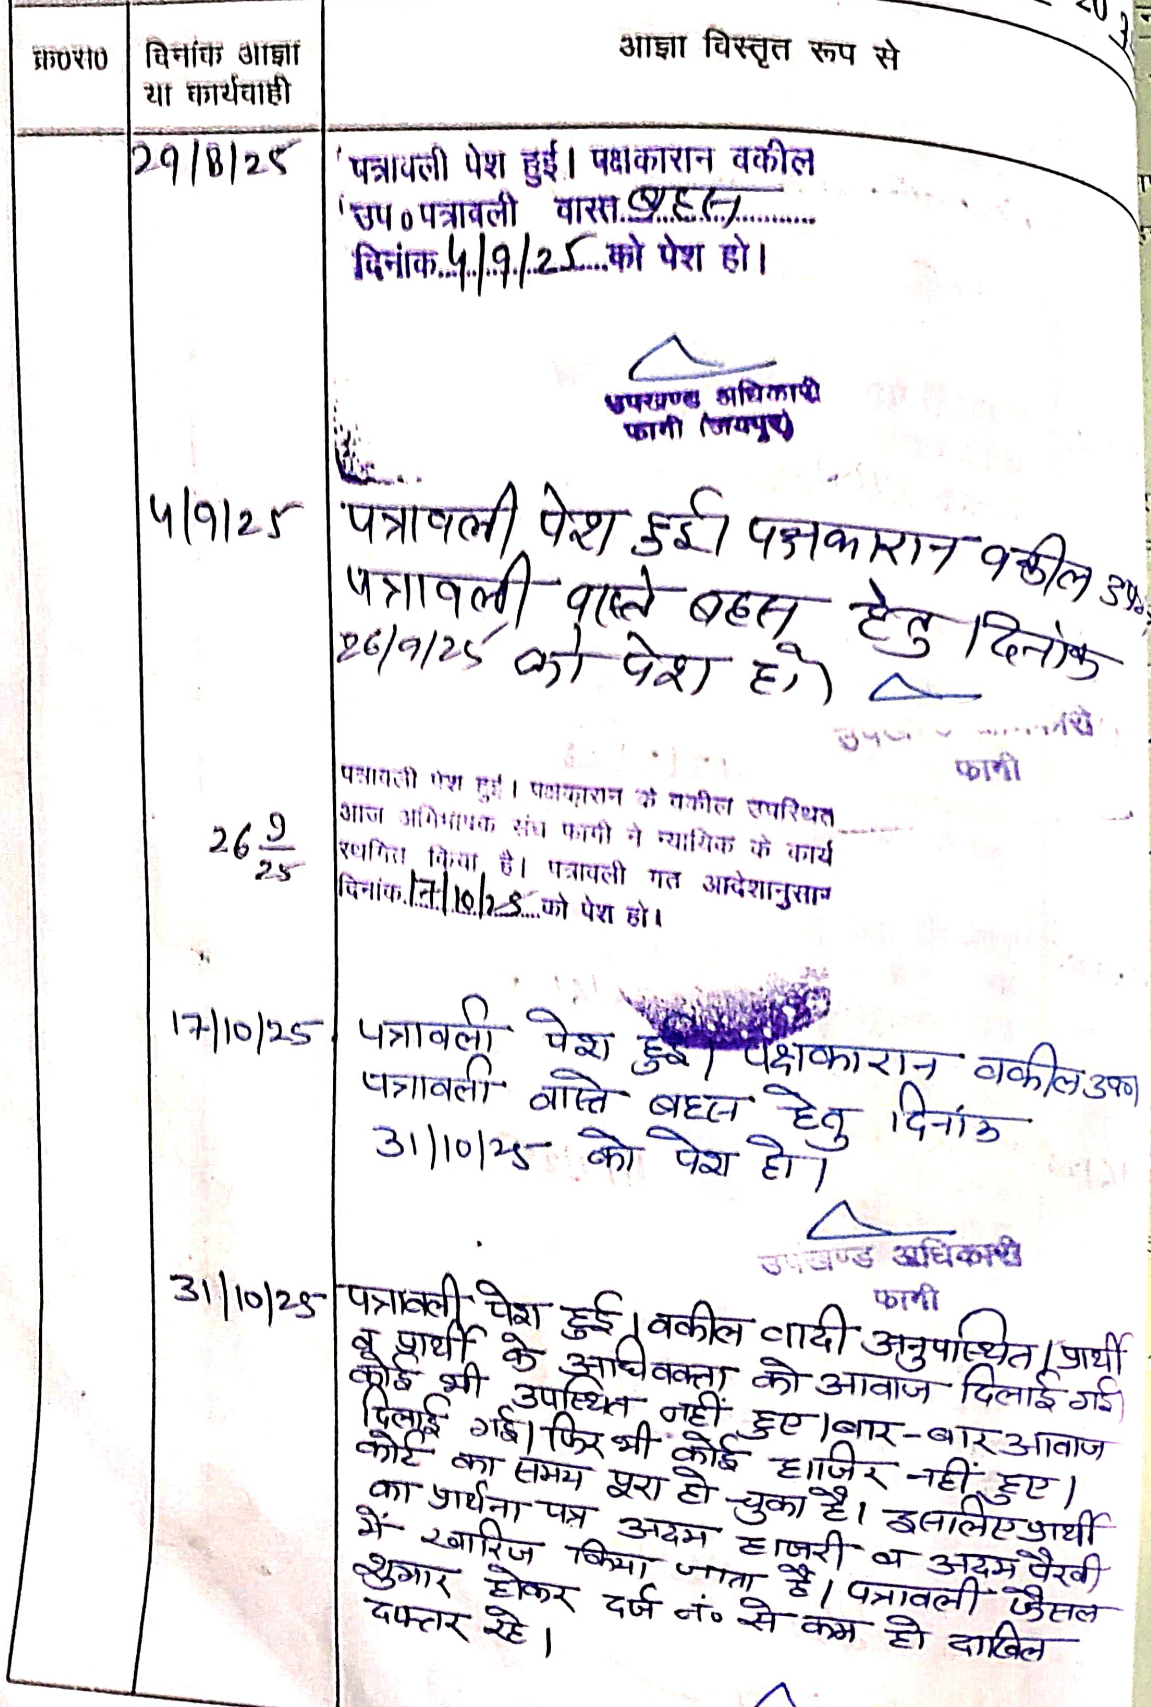 क्र०सं० दिनांक आज्ञा या कार्यवाही आज्ञा विस्तृत रूप से
29/8/25 पत्रावली पेश हुई। पक्षकारान वकील
उप० पत्रावली वास्ते बहस
दिनांक 4/9/25 को पेश हो।
उपखण्ड अधिकारी
फागी (जयपुर)
4/9/25 पत्रावली पेश हुई। पक्षकारान वकील उप०
पत्रावली वास्ते बहस हेतु दिनांक
26/9/25 को पेश हो।
फागी
26 9/25 पत्रावली पेश हुई। पक्षकारान के वकील उपस्थित
आज अभिभाषक संघ फागी ने न्यायिक के कार्य
स्थगित किया है। पत्रावली गत आदेशानुसार
दिनांक 17/10/25 को पेश हो।
17/10/25 पत्रावली पेश हुई। पक्षकारान वकील उप०
पत्रावली वास्ते बहस हेतु दिनांक
31/10/25 को पेश हो।
उपखण्ड अधिकारी
फागी
31/10/25 पत्रावली पेश हुई। वकील वादी अनुपस्थित। प्रार्थी
व प्रार्थी के अधिवक्ता को आवाज दिलाई गई।
कोई भी उपस्थित नहीं हुए। बार-बार आवाज
दिलाई गई। फिर भी कोई हाजिर नहीं हुए।
कोर्ट का समय पूरा हो चुका है। इसलिए प्रार्थी
का प्रार्थना पत्र अदम हाजरी व अदम पैरवी
में खारिज किया जाता है। पत्रावली फैसल
शुमार होकर दर्ज नं० से कम हो दाखिल
दफ्तर रहे।